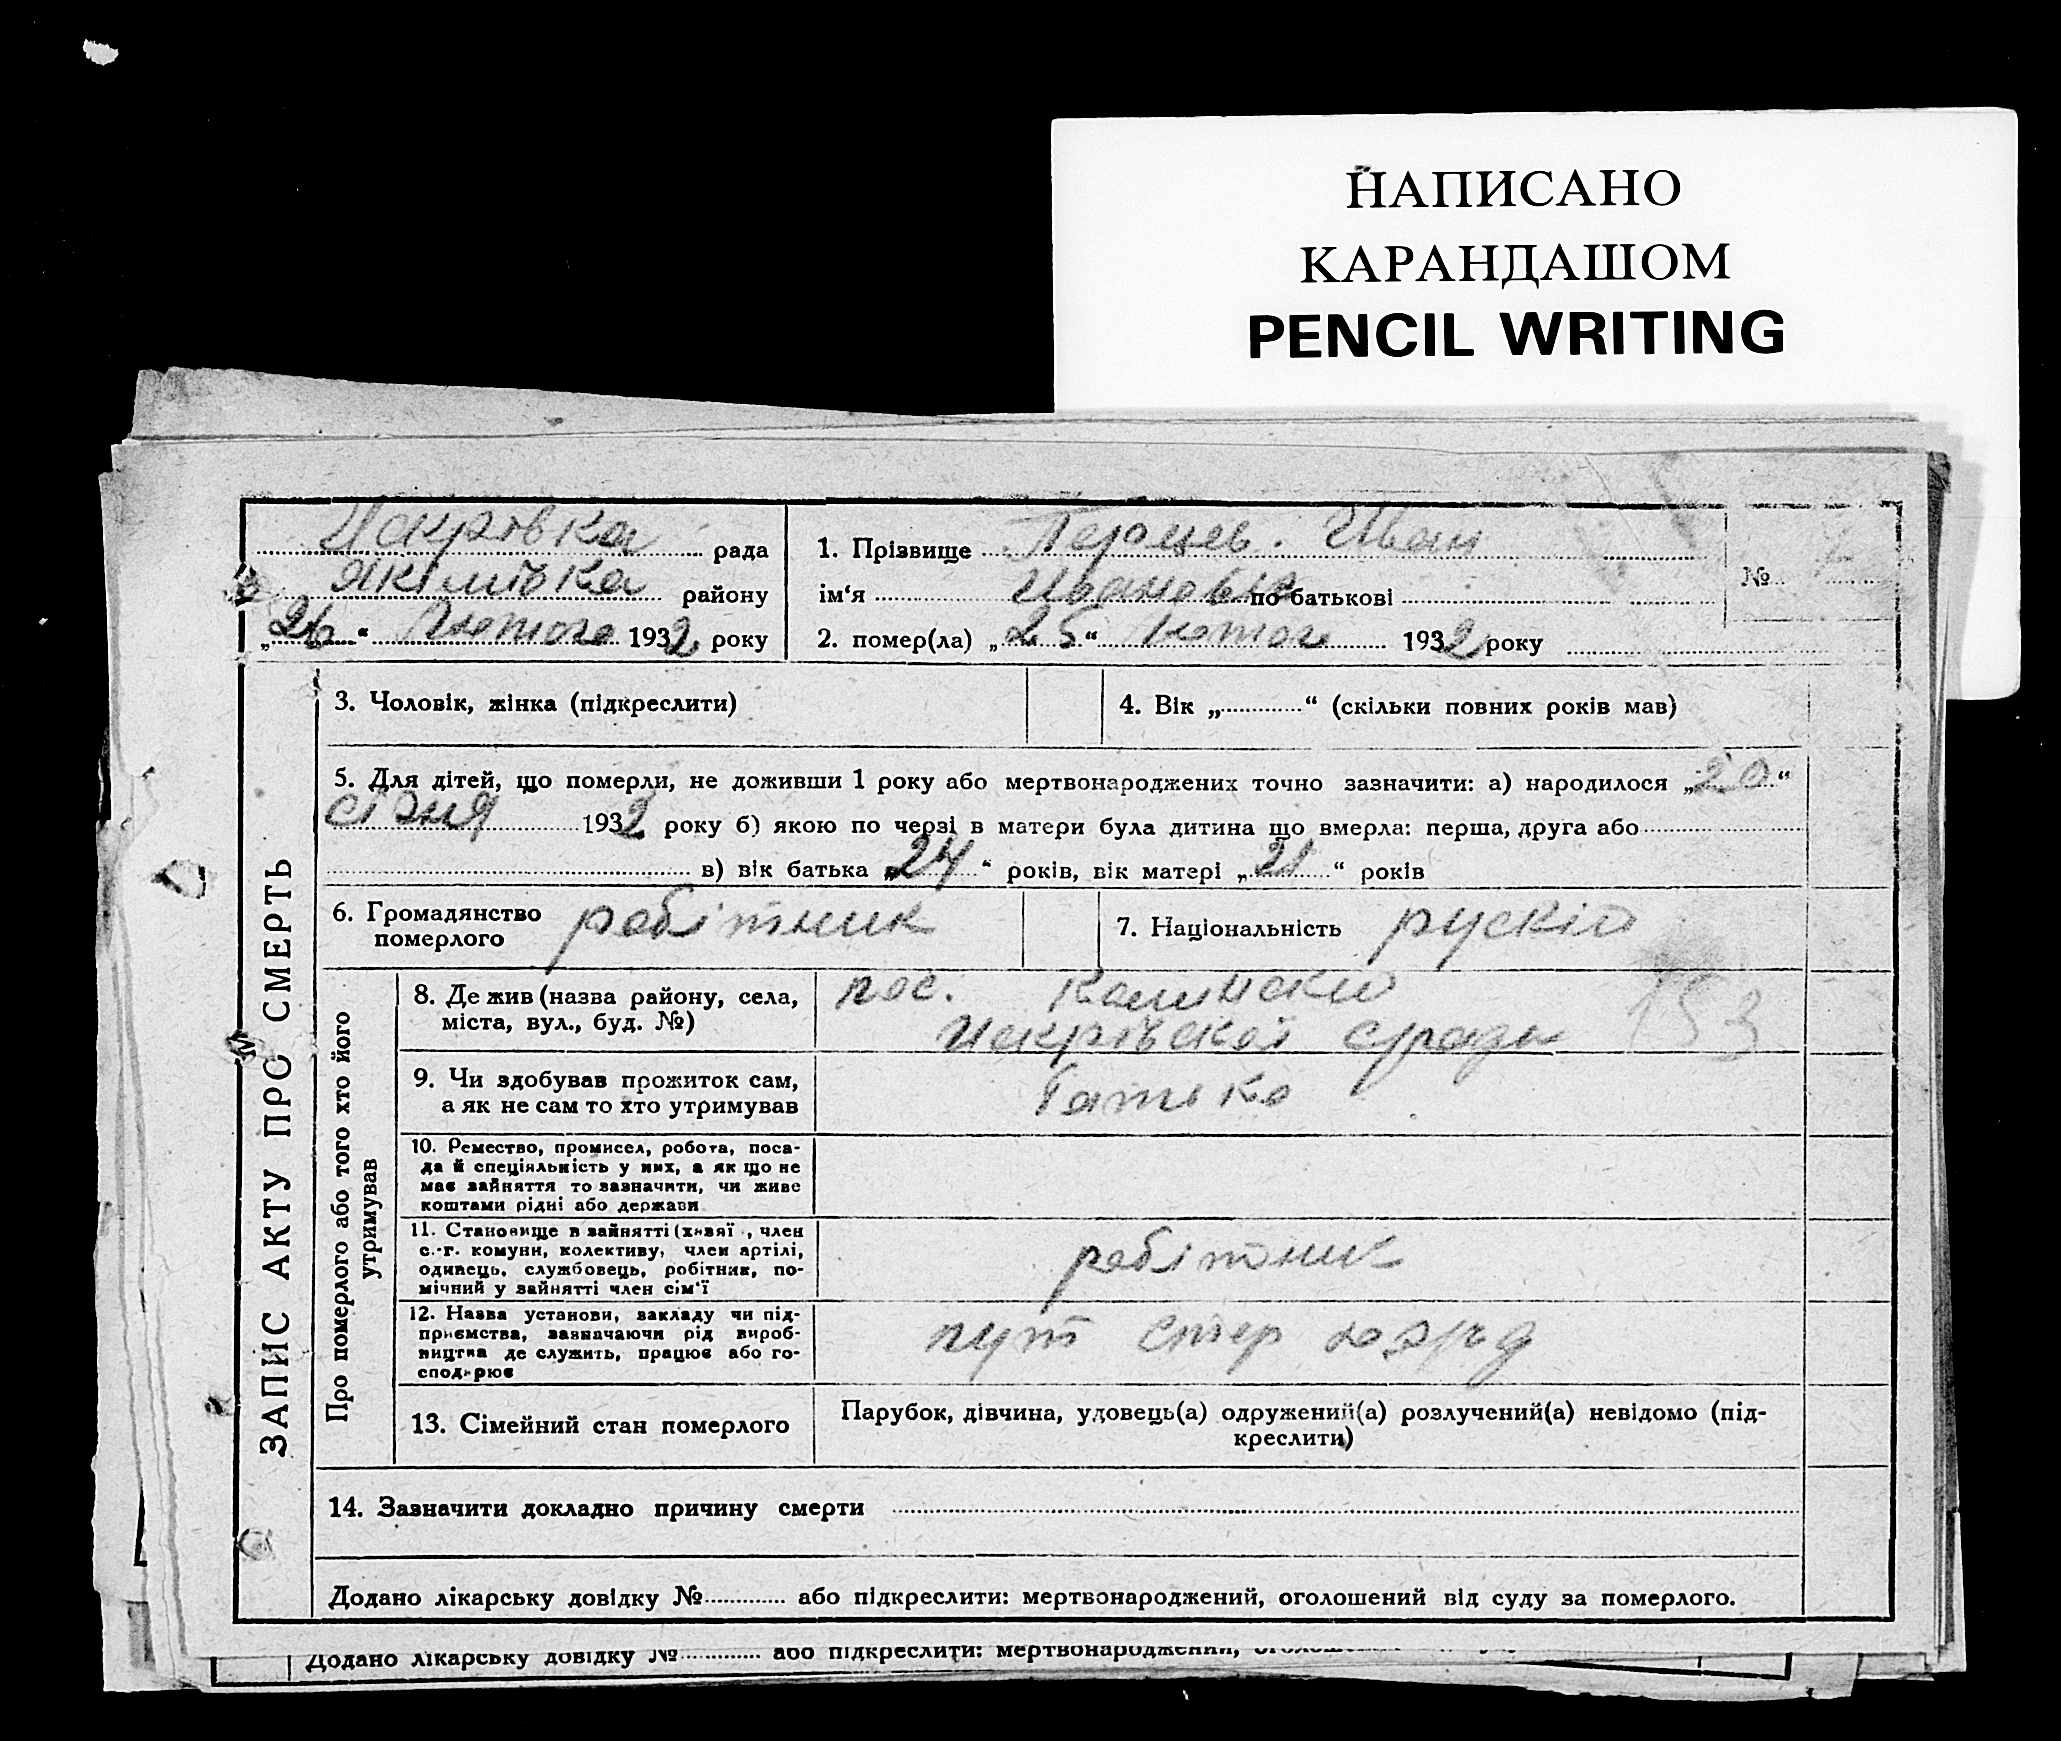 НАПИСАНО
КАРАНДАШОМ
PENCIL WRITING
Искрівка рада
Якимівка району
„26“ Лютого 1932 року
1. Прізвище Перцев. Иван
ім‘я Иванович по батькові
2. помер(ла) „25“ лютого 1932 року
№
ЗАПИС АКТУ ПРО СМЕРТЬ
3. Чоловік, жінка (підкреслити)
4. Вік „ “ (скільки повних років мав)
5. Для дітей, що померли, не доживши 1 року або мертвонароджених точно зазначити: а) народилося „20“
січня 1932 року б) якою по черзі в матери була дитина що вмерла: перша, друга або
в) вік батька „24“ років, вік матері „21“ років
6. Громадянство
померлого робітник
7. Національність рускій
Про померлого або того хто його
утримував
8. Де жив (назва району, села,
міста, вул., буд. №)
пос.
Искрівскої с/ради
153
9. Чи здобував прожиток сам,
а як не сам то хто утримував
батько
10. Ремество, промисел, робота, поса-
да й спеціяльність у них, а як що не
має зайняття то зазначити, чи живе
коштами рідні або держави
11. Становище в зайнятті (хазяї , член
с.-г. комуни, колективу, член артілі,
одинець, службовець, робітник, по-
мічний у зайнятті член сім‘ї
робітник
12. Назва установи, закладу чи під-
приємства, зазначаючи рід вироб-
ництва де служить, працює або го-
сподарює
пут
13. Сімейний стан померлого
Парубок, дівчина, удовець(а) одружений(а) розлучений(а) невідомо (під-
креслити)
14. Зазначити докладно причину смерти
Додано лікарську довідку № або підкреслити: мертвонароджений, оголошений від суду за померлого.
Додано лікарську довідку № або підкреслити: мертвонароджений,